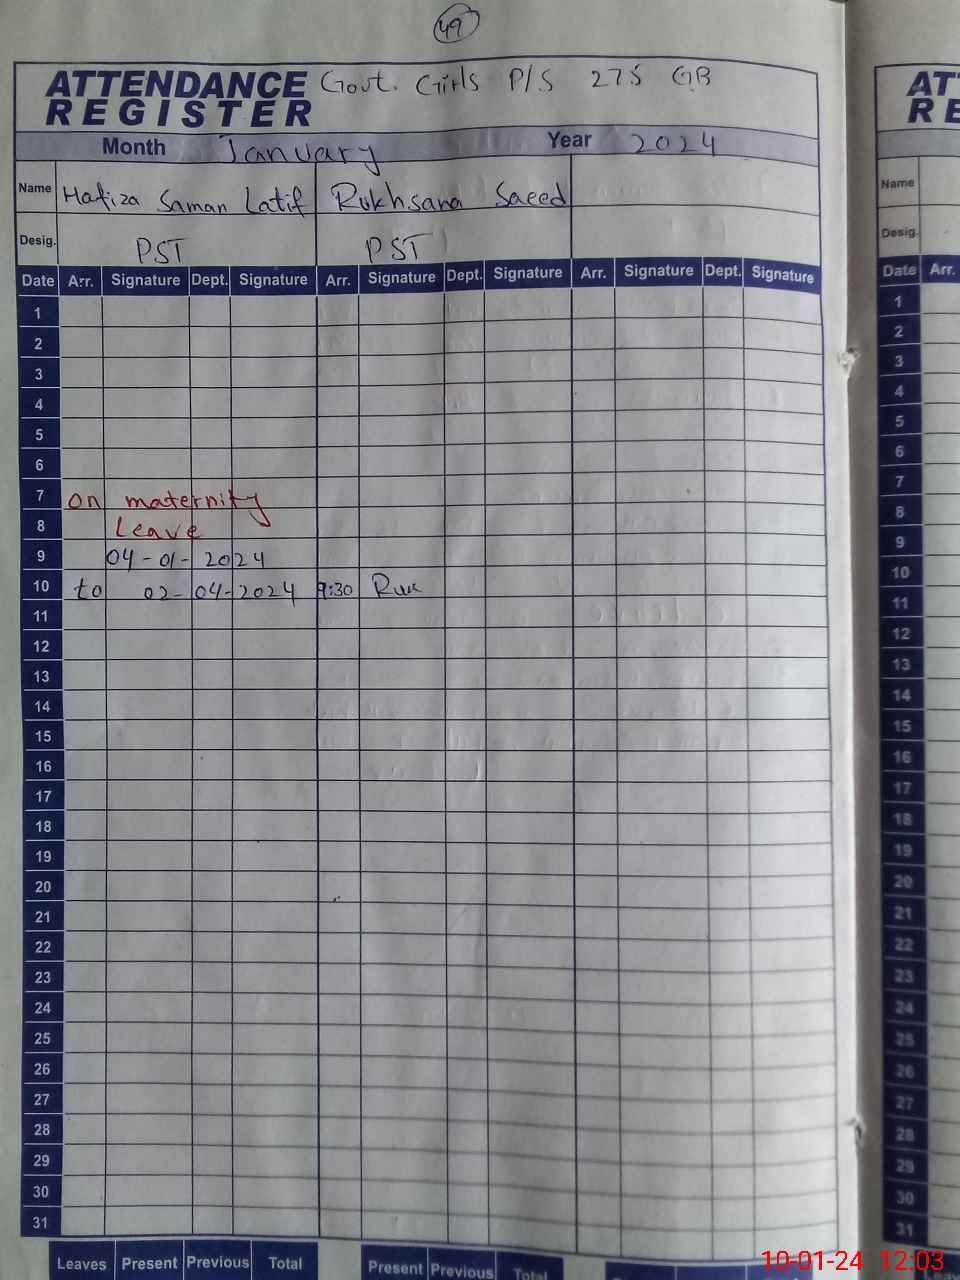 49
ATTENDANCE Govt. Girls P/S 275 GB
REGISTER
Month January Year 2024
Name Hafiza Saman Latif Rukhsana Saeed
Desig. PST PST
Date Arr. Signature Dept. Signature Arr. Signature Dept. Signature Arr. Signature Dept. Signature
1
2
3
4
5
6
7 on maternity
8 Leave
9 04-01-2024
10 to 02-04-2024 9:30 Ruk
11
12
13
14
15
16
17
18
19
20
21
22
23
24
25
26
27
28
29
30
31
Leaves Present Previous Total Present Previous Total
AT
RE
Name
Desig.
Date Arr.
1
2
3
4
5
6
7
8
9
10
11
12
13
14
15
16
17
18
19
20
21
22
23
24
25
26
27
28
29
30
31
10-01-24 12:03